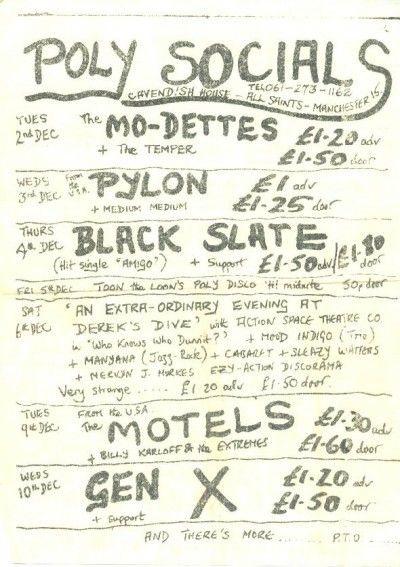 POLY SOCIALS
CAVENDISH HOUSE - TEL 061-273-1162
ALL SAINTS - MANCHESTER 15.
TUES 2nd DEC The MO-DETTES £1.20 adv
+ The TEMPER £1.50 door
WEDS 3rd DEC From the U.S.A. PYLON £1 adv
+ MEDIUM MEDIUM £1.25 door
THURS 4th DEC BLACK SLATE
(Hit single "AMIGO") + Support £1.50 adv/£1.80 door
FRI 5th DEC TOON the LOON'S POLY DISCO 50p door
SAT 6th DEC 'AN EXTRA-ORDINARY EVENING AT
DEREK'S DIVE' with ACTION SPACE THEATRE CO.
in "Who Knows Who Dunnit?" + MOOD INDIGO (Trio)
+ MANYANA (Jazz-Rock) + CABARET + SLEAZY WAITERS
+ J. EZY-ACTION DISCORAMA
Very strange ..... £1.20 adv £1.50 door.
TUES 9th DEC From the USA The MOTELS £1.30 adv
+ BILLY KARLOFF & the EXTREMES £1.60 door
WEDS 10th DEC GEN X £1.20 adv
+ support £1.50 door
AND THERE'S MORE ........ P.T.O